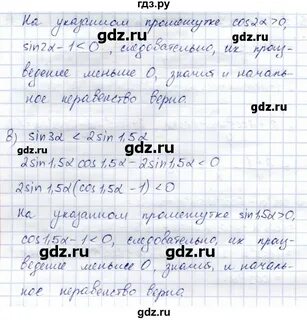 гдз.ру
На указанном промежутке cos2α>0,
sin2α-1<0, следовательно, их произ
ведение меньше 0, значит и началь-
ное неравенство верно.
в) sin3α < 2sin1,5α
2sin1,5αcos1,5α-2sin1,5α<0
2sin1,5α(cos1,5α-1)<0
На указанном промежутке sin1,5α>0,
cos1,5α-1<0, следовательно, их про
ведение меньше 0, значит, и началь-
ное неравенство верно
гдз.ру